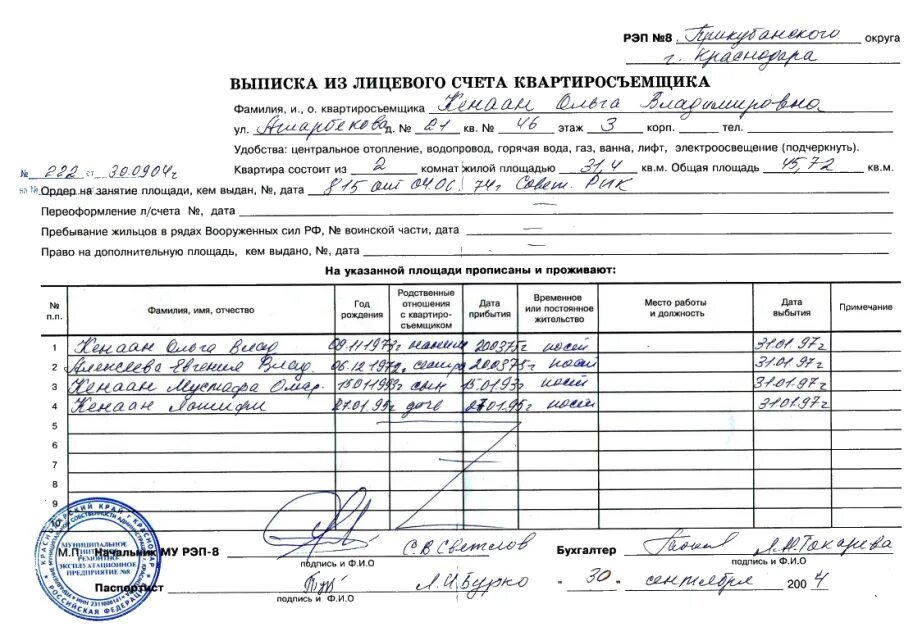 РЭП №8 Прикубанского округа
г. Краснодара
ВЫПИСКА ИЗ ЛИЦЕВОГО СЧЕТА КВАРТИРОСЪЕМЩИКА
Фамилия, и., о. квартиросъемщика Кенаан Ольга Владимировна
ул. Ашарбекова д. № 21 кв. № 46 этаж 3 корп. тел.
Удобства: центральное отопление, водопровод, горячая вода, газ, ванна, лифт, электроосвещение (подчеркнуть).
№ 222 от 30.09.04г Квартира состоит из 2 комнат жилой площадью 31,4 кв.м. Общая площадь 45,72 кв.м.
на № Ордер на занятие площади, кем выдан, №, дата 815 от 04.06.74г Совет. РИК
Переоформление л/счета №, дата —
Пребывание жильцов в рядах Вооруженных сил РФ, № воинской части, дата —
Право на дополнительную площадь, кем выдано, №, дата —
На указанной площади прописаны и проживают:
№ п.п. Фамилия, имя, отчество Год рождения Родственные отношения с квартиро-съемщиком Дата прибытия Временное или постоянное жительство Место работы и должность Дата выбытия Примечание
1 Кенаан Ольга Влад 20.03.75 31.01.97г
2 Алексеева Евгения Влад. 06.12.1972г сестра 20.03.75 31.01.97г
3 Кенаан Мустафа Омар. 15.01.1993г сын 15.01.93г 31.01.97г
4 Кенаан 27.01.95г дочь 27.01.95г 31.01.97г
5
6
7
8
9
М.П. Начальник МУ РЭП-8 С В Светлов Бухгалтер Л.М. Токарева
подпись и Ф.И.О подпись и Ф.И.О
Паспортист Л.И. Бурко - 30 - сентября 2004
подпись и Ф.И.О
КРАСНОДАРСКИЙ КРАЙ г. КРАСНОДАР
МУНИЦИПАЛЬНОЕ
РЕМОНТНО-
ЭКСПЛУАТАЦИОННОЕ
ПРЕДПРИЯТИЕ №8
РОССИЙСКАЯ ФЕДЕРАЦИЯ